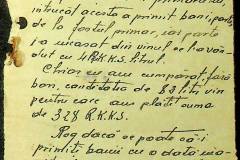 întrucât acesta a primit bani, parte
de la fostul primar, iar parte
i-a încasat din vinul ce l-a vân-
dut cu 4 R.K.K.S. litrul.
Chiar eu am cumpărat, fără
bon, cantitatea de 82 litri vin
pentru care am plătit suma
de 328 R.K.K.S.
Rog dacă se poate să-i
primiți banii cu o dată